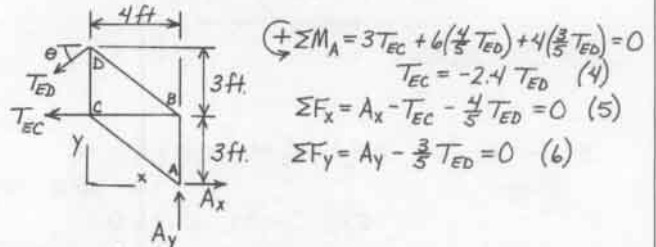 4 ft
θ
D
T_ED
3 ft.
T_EC
C
B
y
x
3 ft.
A
A_x
A_y
+ ΣM_A = 3T_EC + 6(4/5 T_ED) + 4(3/5 T_ED) = 0
T_EC = -2.4 T_ED (4)
ΣF_x = A_x - T_EC - 4/5 T_ED = 0 (5)
ΣF_y = A_y - 3/5 T_ED = 0 (6)